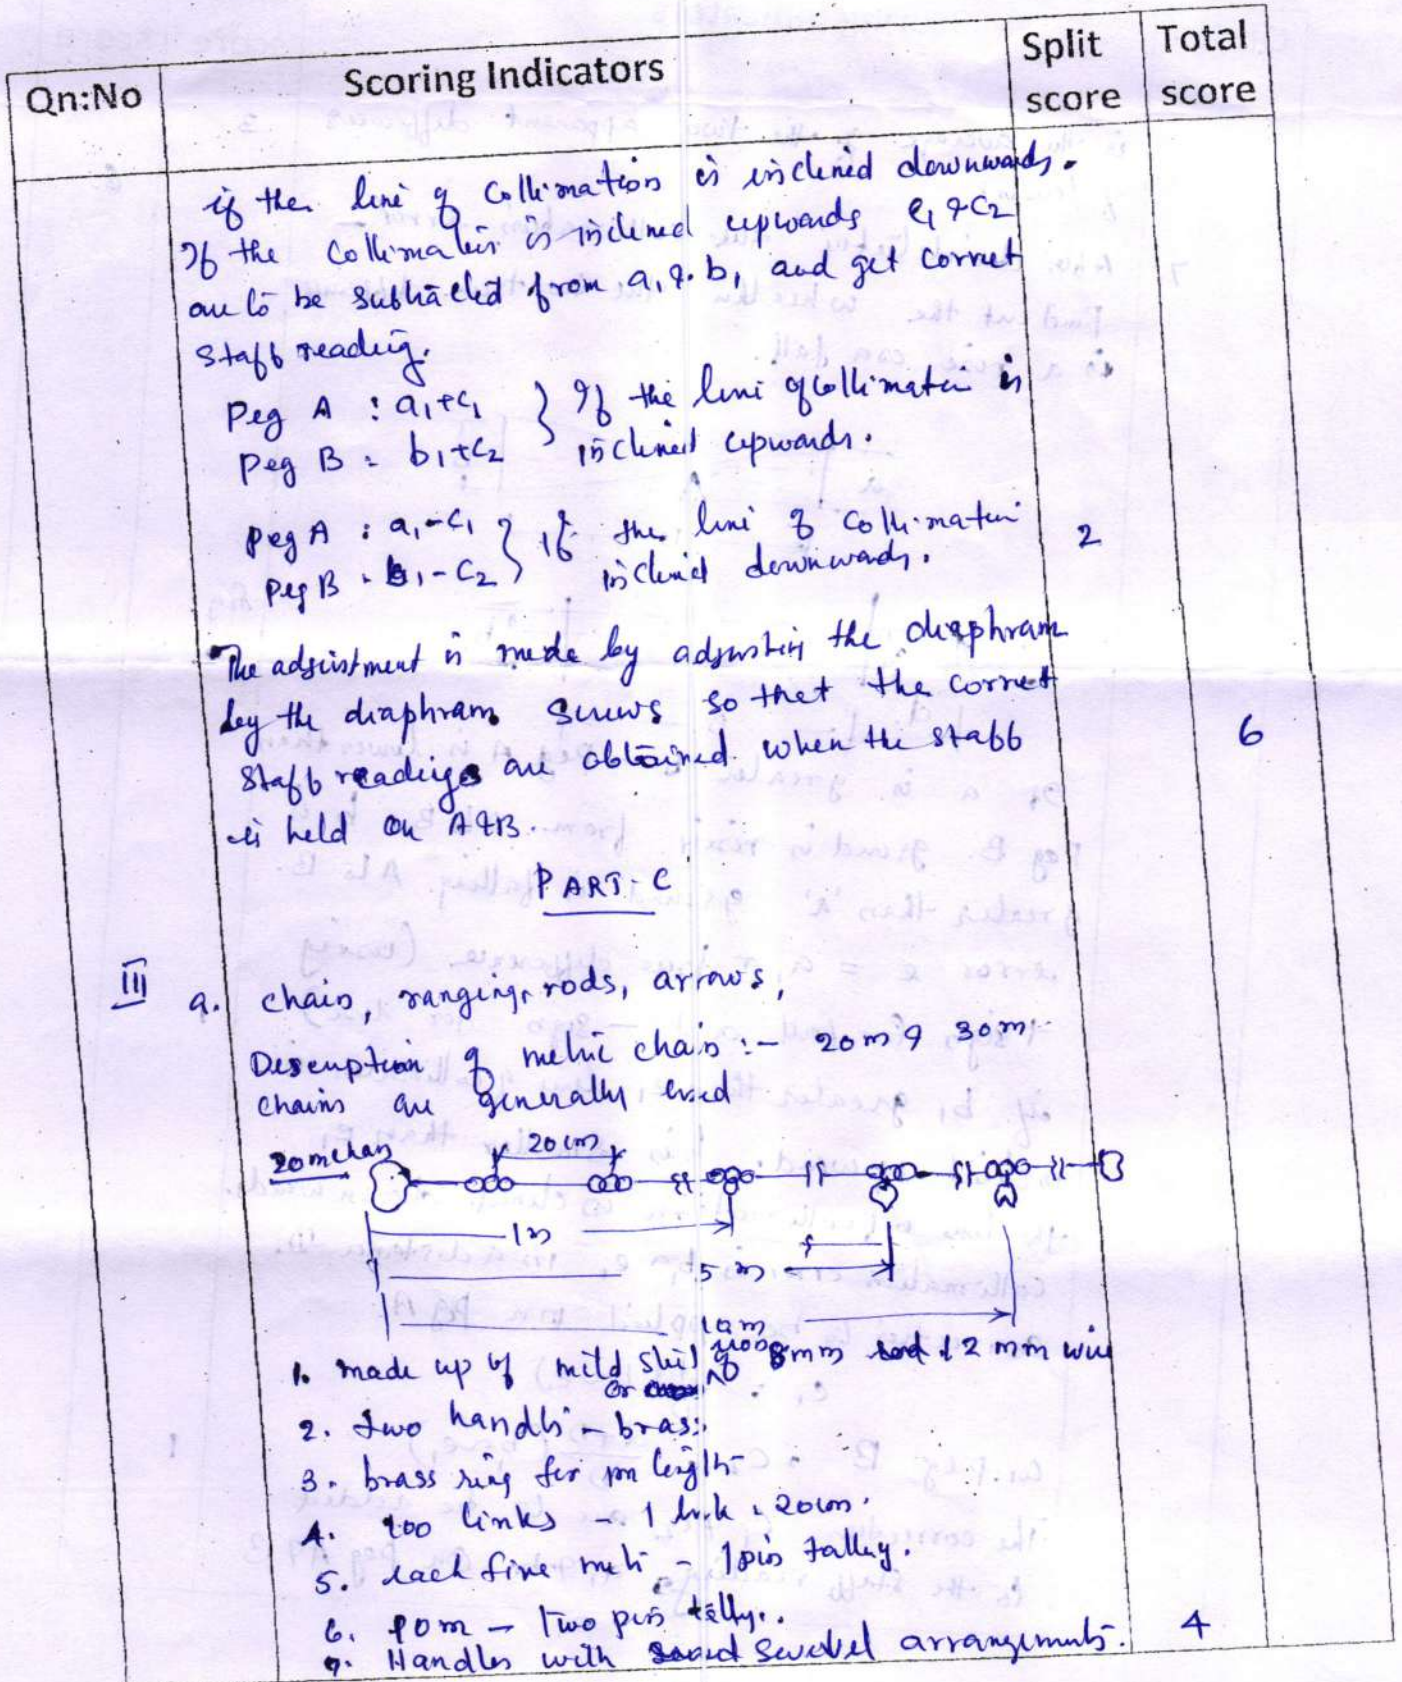 Qn:No Scoring Indicators Split score Total score
if the line of Collimation is inclined downwards.
If the Collimation is inclined upwards e1 & C2
are to be subtracted from a1 & b1 and get correct
staff reading.
Peg A : a1+c1 } If the line of collimation is
Peg B : b1+c2 inclined upwards.
Peg A : a1-c1 } if the line of collimation
Peg B : b1-c2 inclined downwards. 2
The adjustment is made by adjusting the diaphram
by the diaphram screws so that the correct
staff readings are obtained when the staff 6
is held on A&B.
PART-C
III a. chain, ranging rods, arrows,
Description of metric chain :- 20m & 30m
chains are generally used
20m chain 20cm
1m
5m
10m
1. made up of mild steel of 8mm 12 mm wire
2. two handls - brass
3. brass ring for length
4. 100 links - 1 link = 20cm.
5. each five metr - 1 pin talley.
6. 10m - Two pin tally.
7. Handles with swevel arrangements. 4